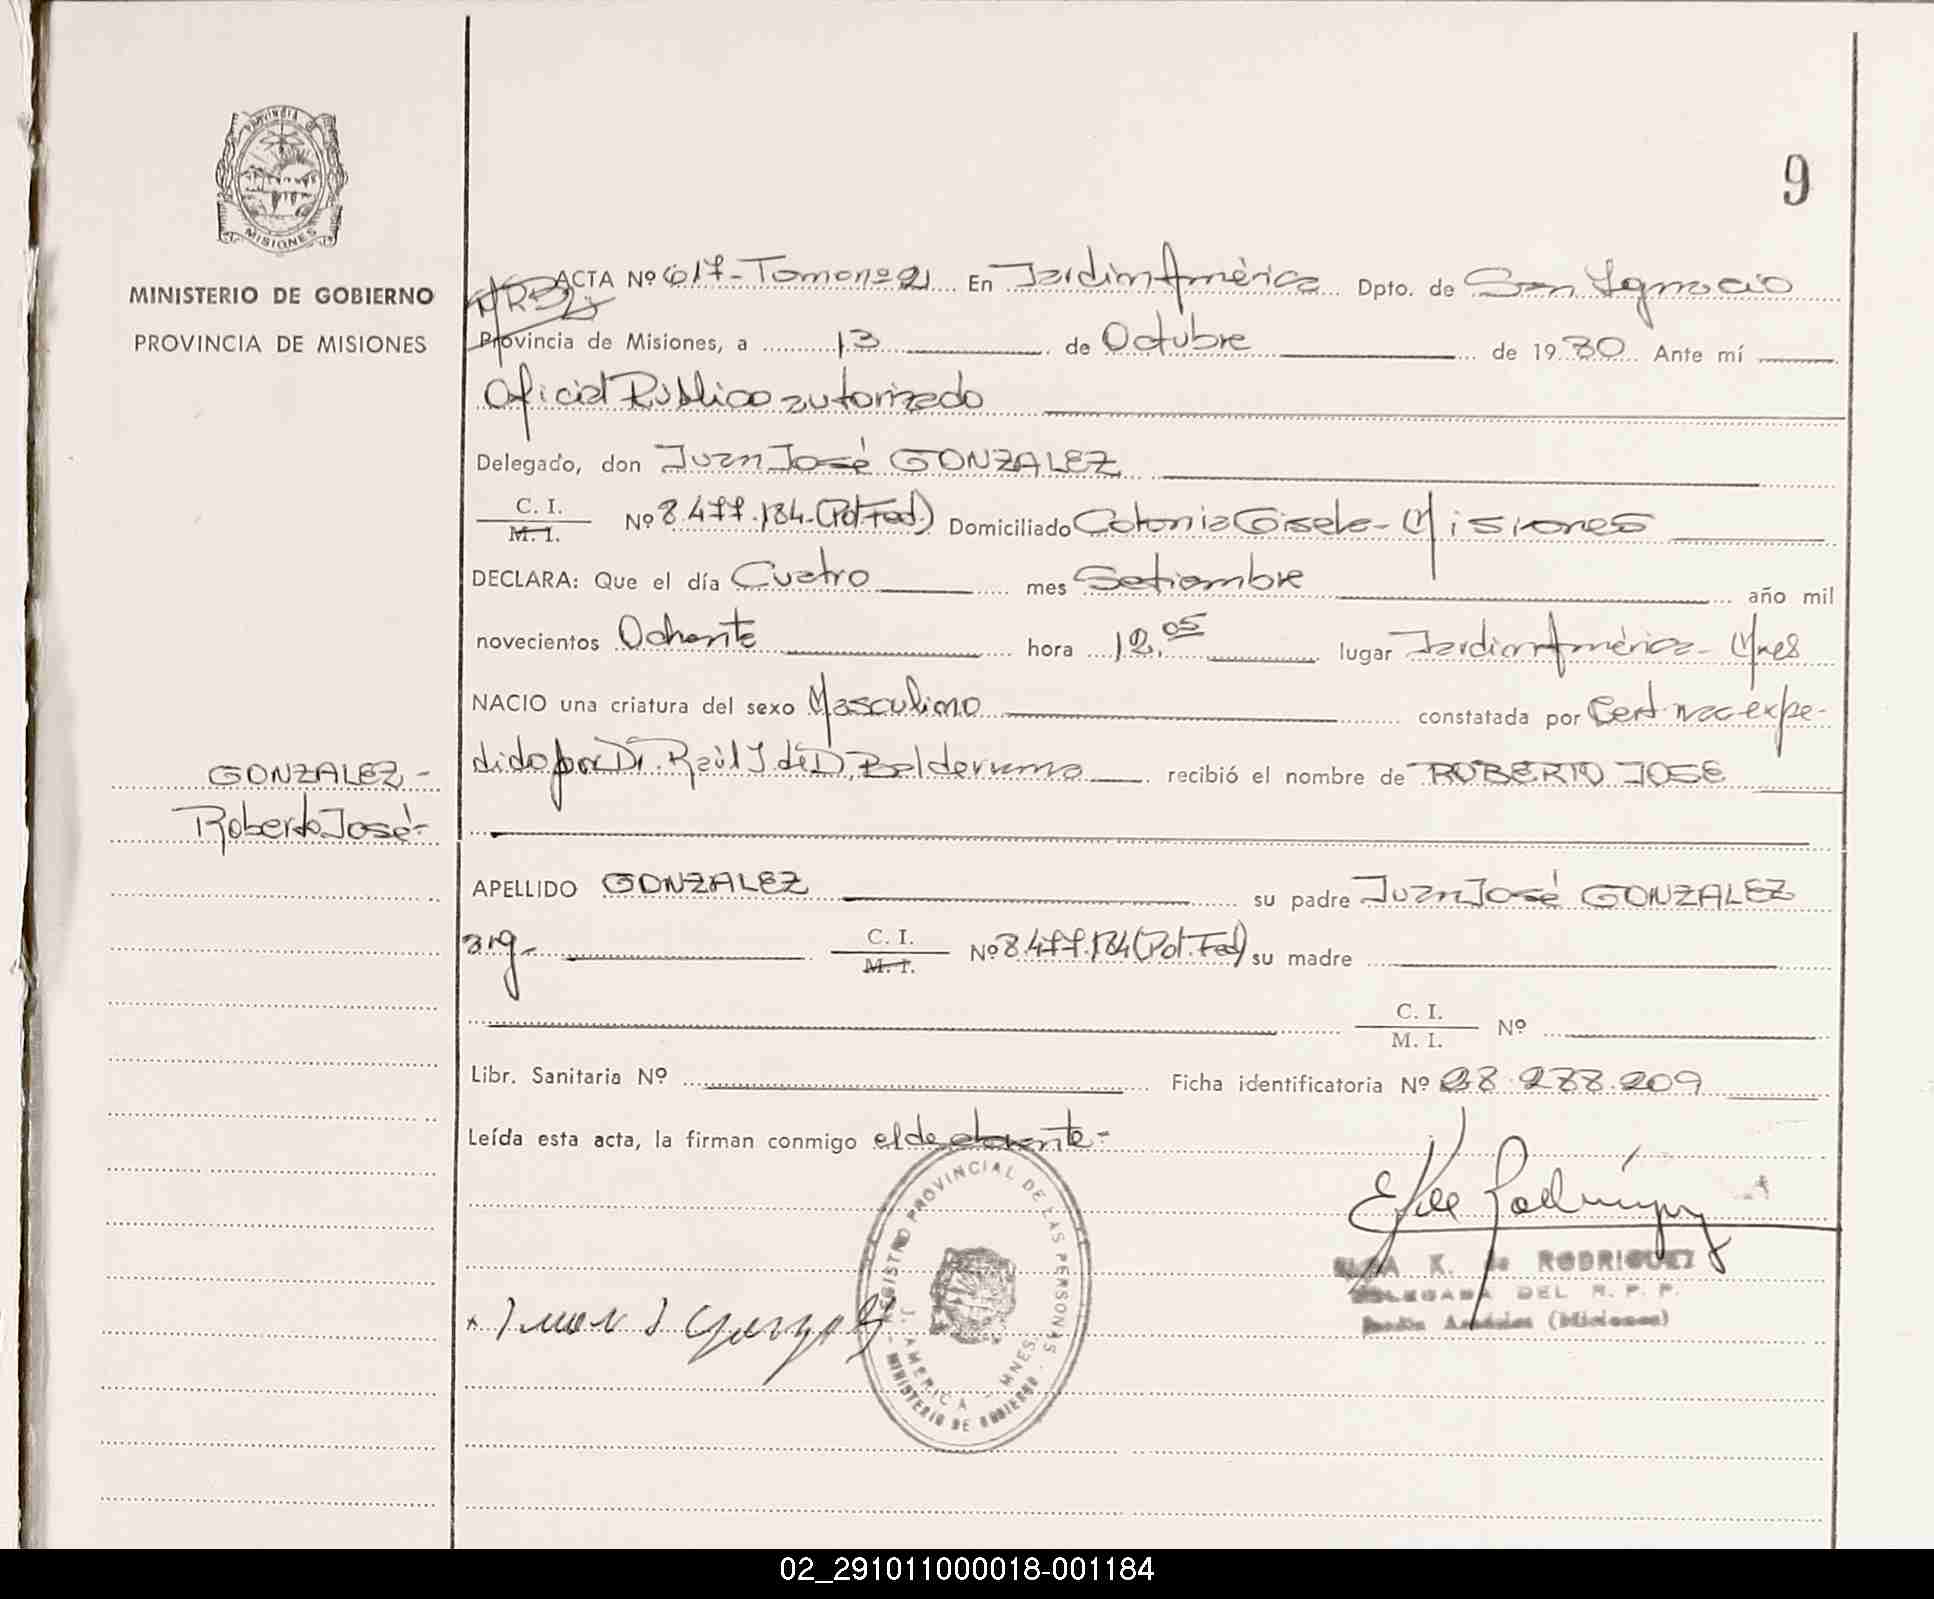 9
PROVINCIA DE
MISIONES
MINISTERIO DE GOBIERNO
PROVINCIA DE MISIONES
ACTA Nº 617-Tomo nº 21 En Jardin América Dpto. de San Ignacio
Provincia de Misiones, a 13 de Octubre de 1980 Ante mí
Oficial Público autorizado
Delegado, don Juan José GONZALEZ
C. I.
M. I. Nº 8.477.184-(Pol.Fed.) Domiciliado Colonia Gisela-Misiones
DECLARA: Que el día Cuatro mes Setiembre año mil
novecientos Ochenta hora 12,05 lugar Jardin América-Mnes
NACIO una criatura del sexo Masculino constatada por Cert nac expe-
dido por Dr. Raúl J. de D. Balderrama recibió el nombre de ROBERTO JOSE
GONZALEZ-
Roberto José-
APELLIDO GONZALEZ su padre Juan José GONZALEZ
arg- C. I.
M. I. Nº 8.477.184(Pol.Fed) su madre
C. I.
M. I. Nº
Libr. Sanitaria Nº Ficha identificatoria Nº 28.288.209
Leída esta acta, la firman conmigo el declarante-
REGISTRO PROVINCIAL DE LAS PERSONAS
J. AMERICA - MNES.
MINISTERIO DE GOBIERNO
K. de RODRIGUEZ
DELEGADA DEL R. P. P.
Jardín América (Misiones)
Juan J Gonzalez
02_291011000018-001184